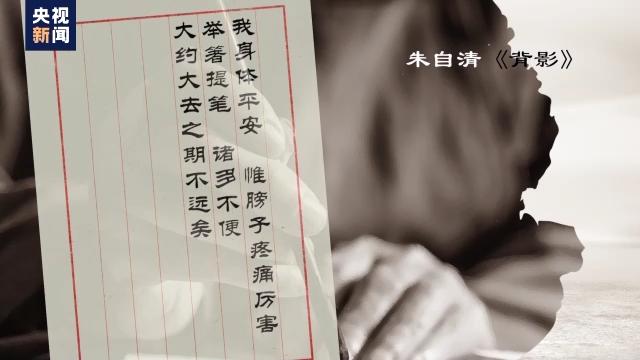 央视
新闻
朱自清《背影》
我身体平安 惟膀子疼痛厉害
举箸提笔 诸多不便
大约大去之期不远矣